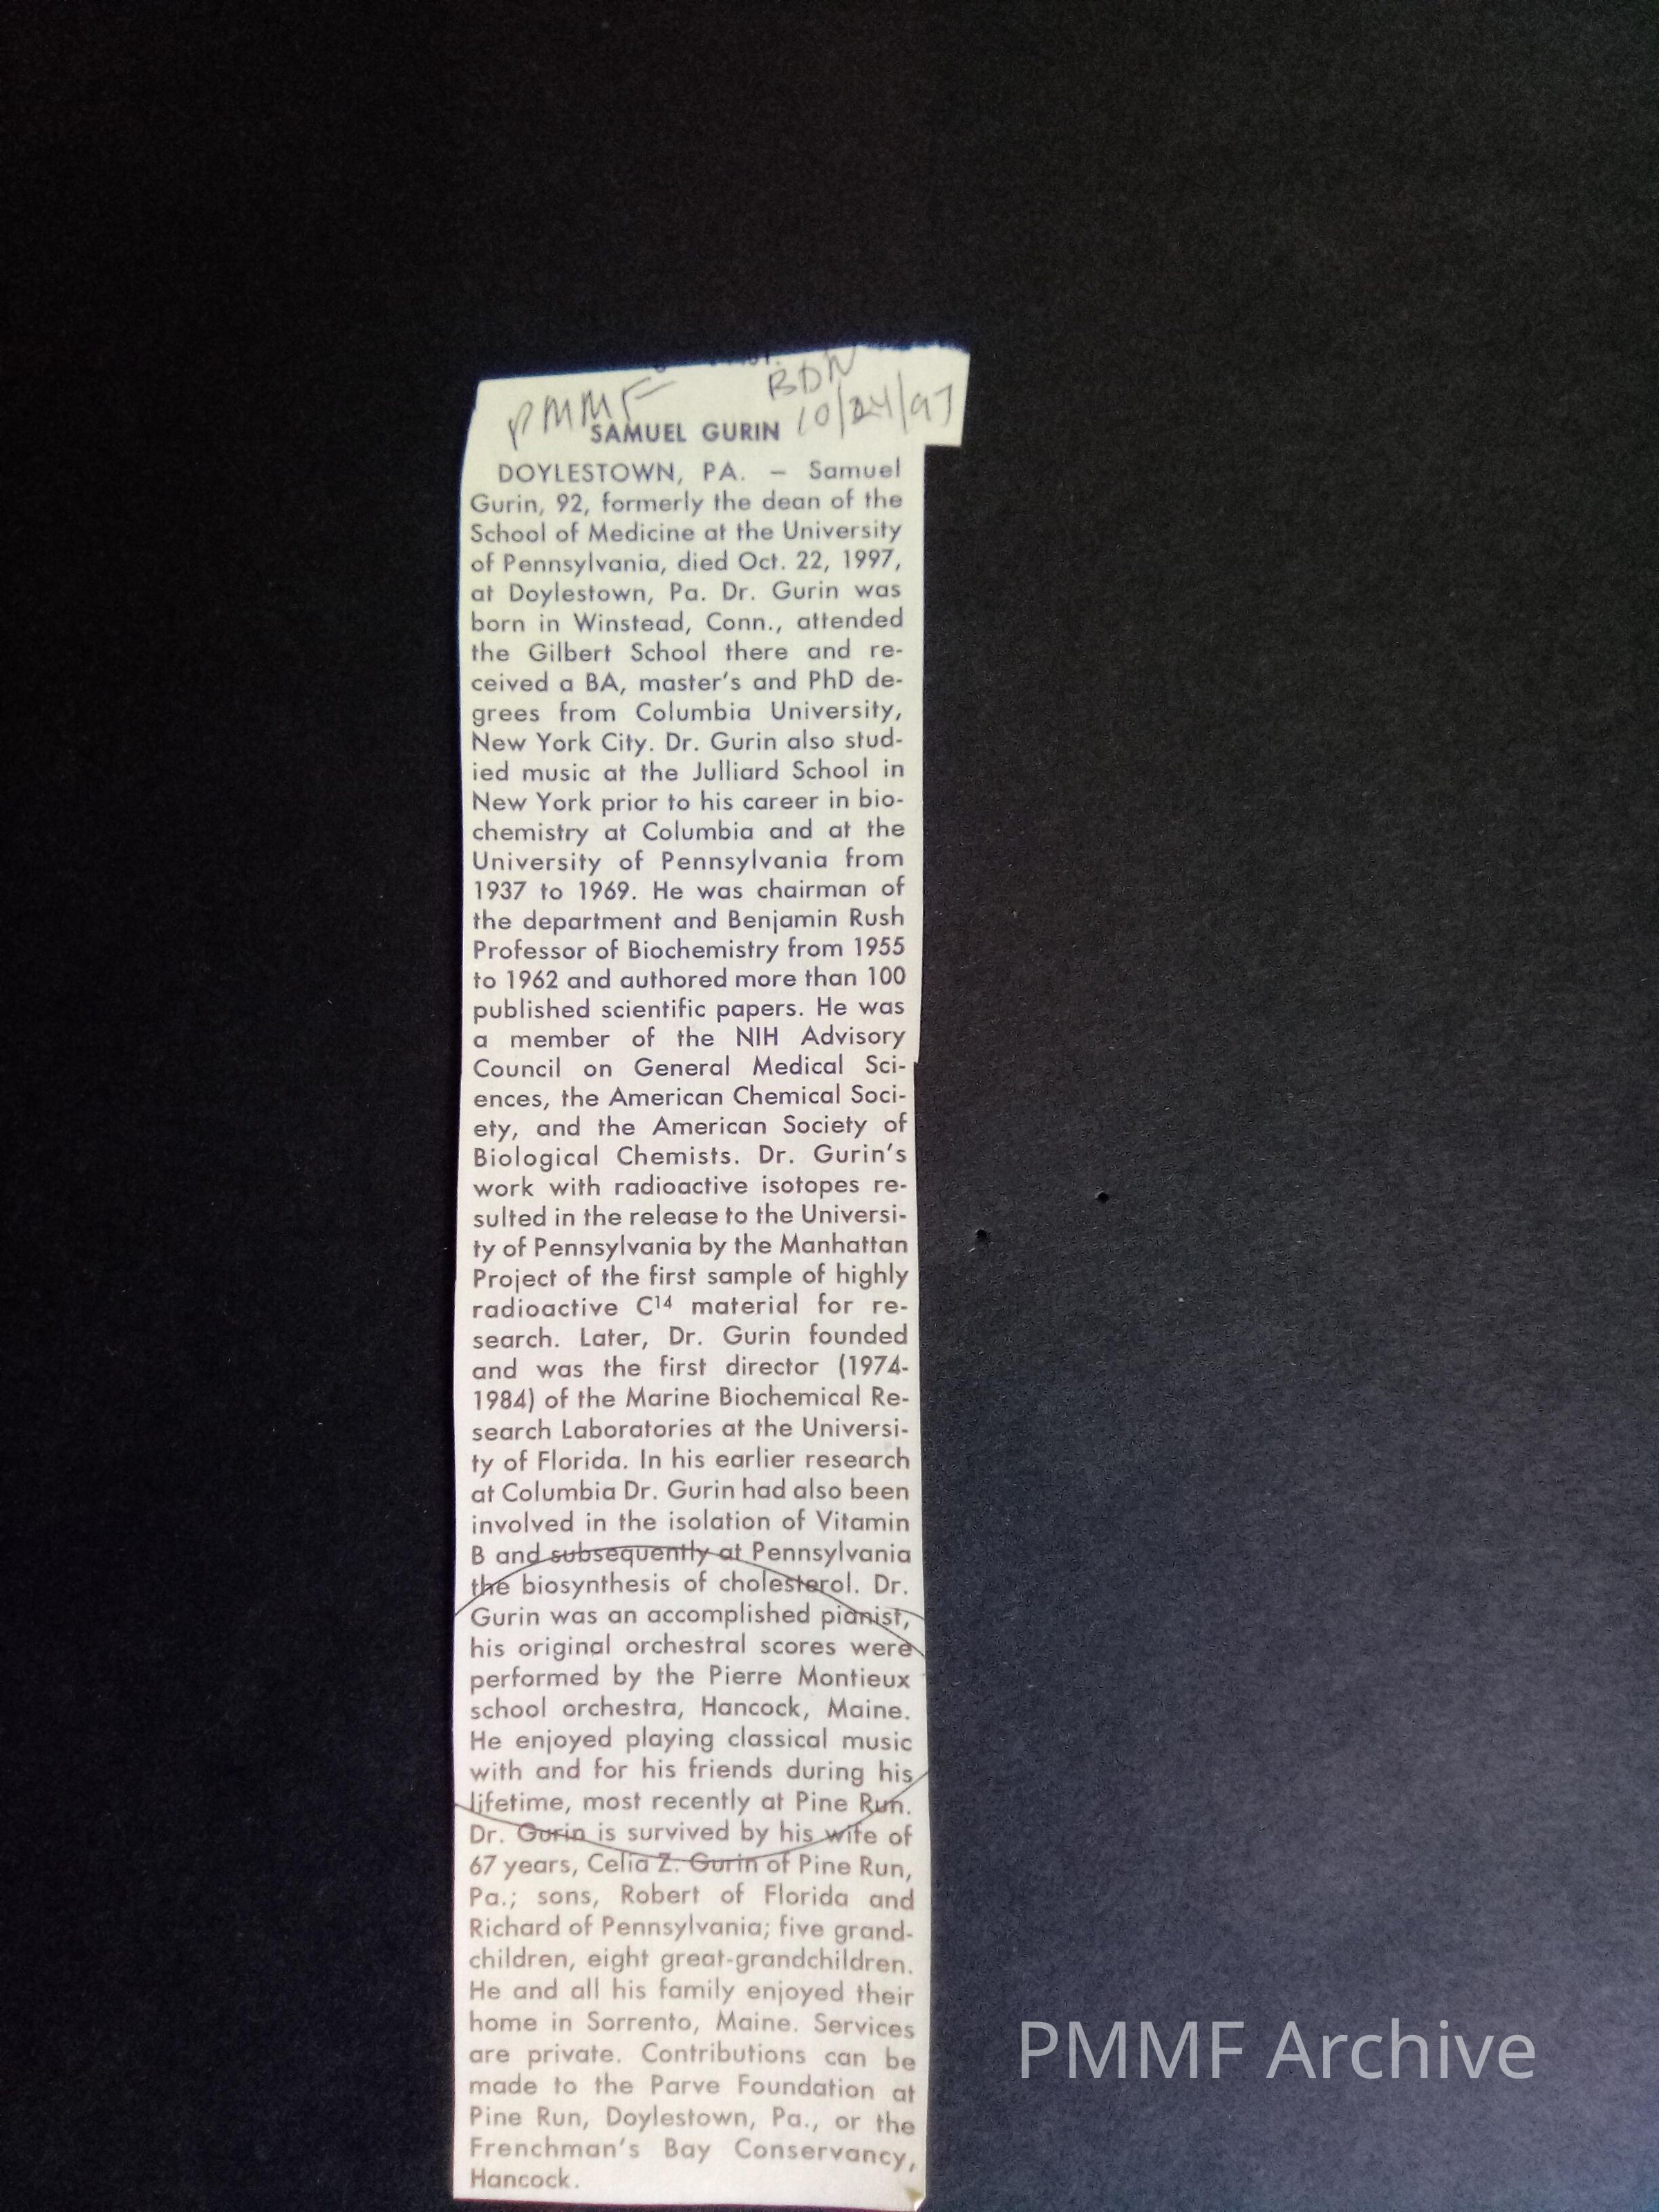 BDN
PMMF
10/24/97
SAMUEL GURIN
DOYLESTOWN, PA. – Samuel
Gurin, 92, formerly the dean of the
School of Medicine at the University
of Pennsylvania, died Oct. 22, 1997,
at Doylestown, Pa. Dr. Gurin was
born in Winstead, Conn., attended
the Gilbert School there and re-
ceived a BA, master's and PhD de-
grees from Columbia University,
New York City. Dr. Gurin also stud-
ied music at the Julliard School in
New York prior to his career in bio-
chemistry at Columbia and at the
University of Pennsylvania from
1937 to 1969. He was chairman of
the department and Benjamin Rush
Professor of Biochemistry from 1955
to 1962 and authored more than 100
published scientific papers. He was
a member of the NIH Advisory
Council on General Medical Sci-
ences, the American Chemical Soci-
ety, and the American Society of
Biological Chemists. Dr. Gurin's
work with radioactive isotopes re-
sulted in the release to the Universi-
ty of Pennsylvania by the Manhattan
Project of the first sample of highly
radioactive C¹⁴ material for re-
search. Later, Dr. Gurin founded
and was the first director (1974-
1984) of the Marine Biochemical Re-
search Laboratories at the Universi-
ty of Florida. In his earlier research
at Columbia Dr. Gurin had also been
involved in the isolation of Vitamin
B and subsequently at Pennsylvania
the biosynthesis of cholesterol. Dr.
Gurin was an accomplished pianist,
his original orchestral scores were
performed by the Pierre Montieux
school orchestra, Hancock, Maine.
He enjoyed playing classical music
with and for his friends during his
lifetime, most recently at Pine Run.
Dr. Gurin is survived by his wife of
67 years, Celia Z. Gurin of Pine Run,
Pa.; sons, Robert of Florida and
Richard of Pennsylvania; five grand-
children, eight great-grandchildren.
He and all his family enjoyed their
home in Sorrento, Maine. Services
are private. Contributions can be
made to the Parve Foundation at
Pine Run, Doylestown, Pa., or the
Frenchman's Bay Conservancy,
Hancock.
PMMF Archive